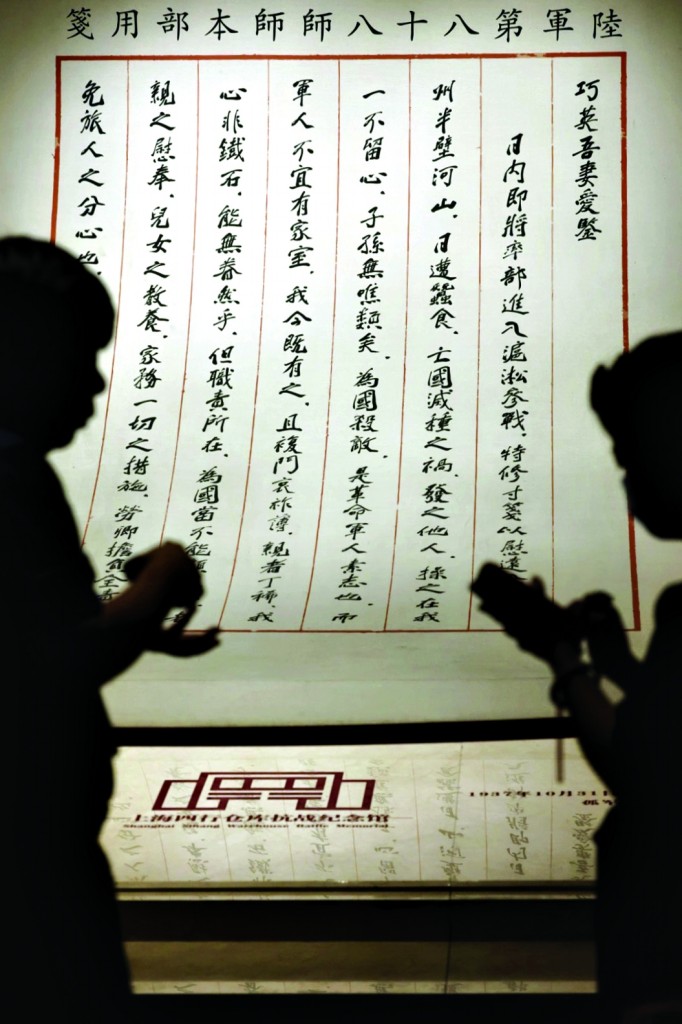 陸軍第八十八師師本部用箋
巧英吾妻愛鑒
日內即將率部進入滬淞參戰,特修寸箋以慰遠
州半壁河山,日遭蠶食,亡國滅種之禍,發之他人,操之在我
一不留心,子孫無噍類矣,為國殺敵,是革命軍人素志也,而
軍人不宜有家室,我今既有之,且複門衰祚薄,親者丁稀,我
心非鐵石,能無眷然乎,但職責所在,為國當不能
親之慰奉,兒女之教養,家務一切之措施,勞卿擔負全
免旅人之分心也,
上海四行仓库抗战纪念馆
Shanghai Sihang Warehouse Battle Memorial
1937年10月31